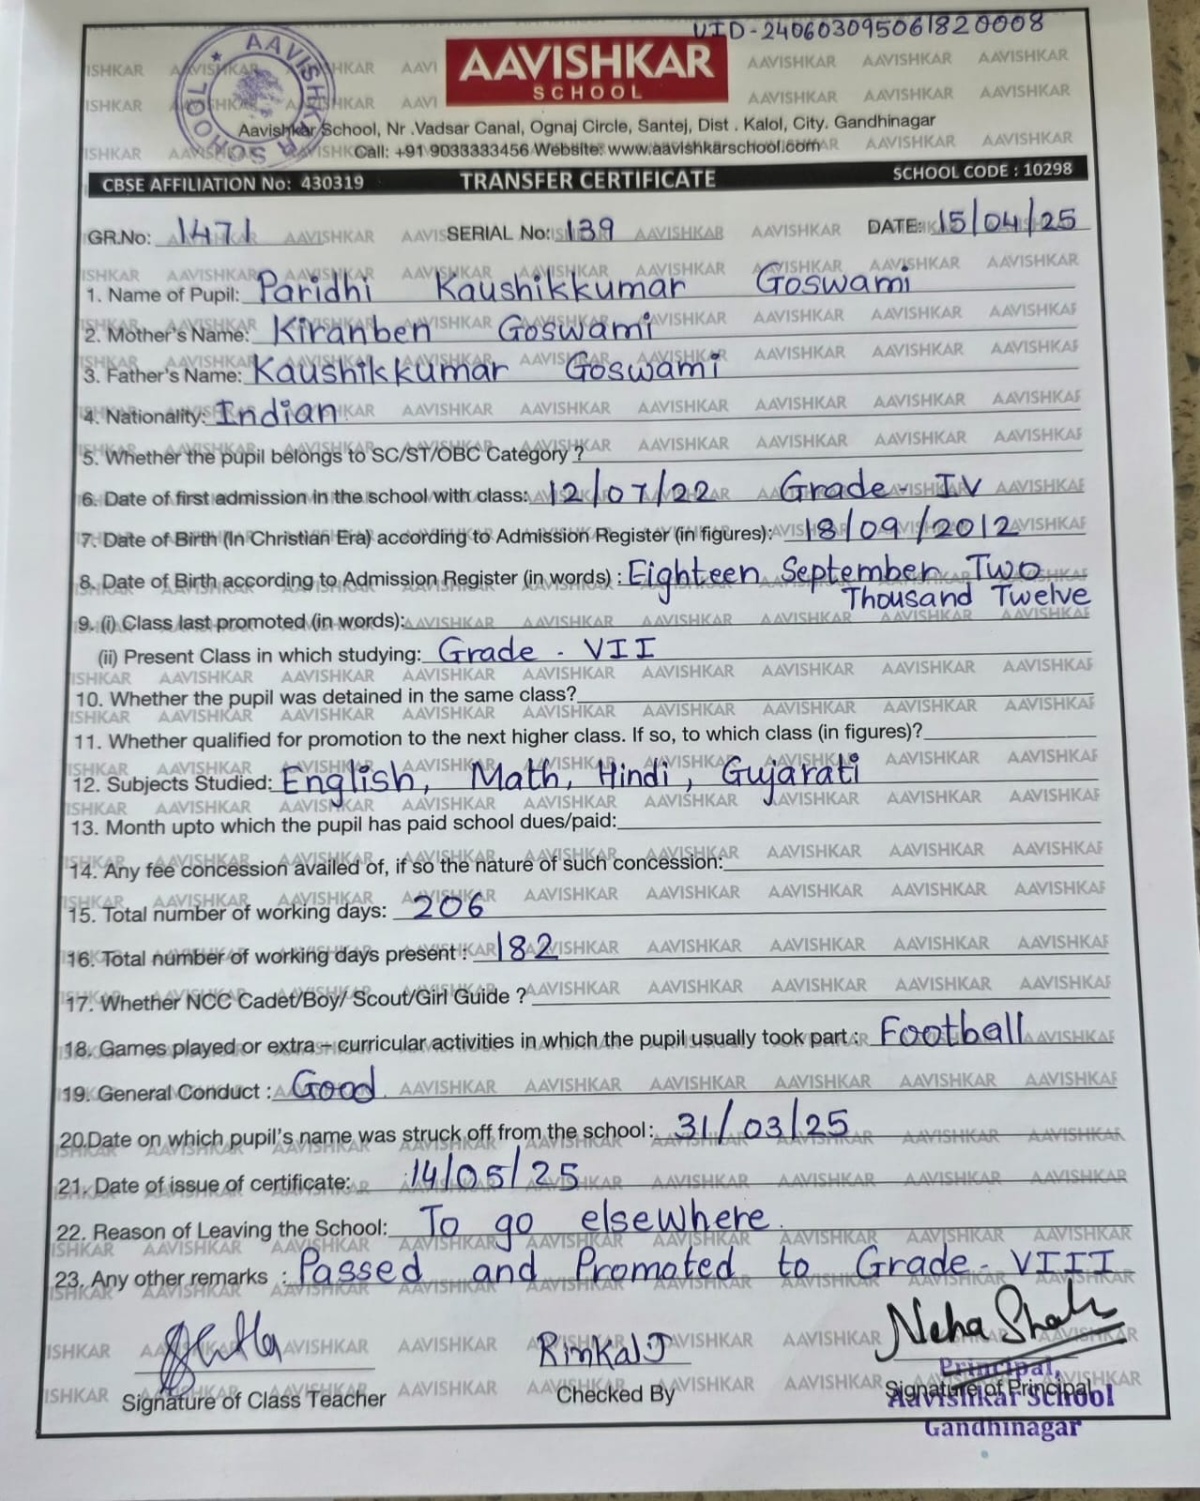 UID-240603095061820008
AAVISHKAR
SCHOOL
Aavishkar School, Nr .Vadsar Canal, Ognaj Circle, Santej, Dist . Kalol, City. Gandhinagar
Call: +91 9033333456 Website: www.aavishkarschool.com
CBSE AFFILIATION No: 430319 TRANSFER CERTIFICATE SCHOOL CODE : 10298
GR.No: 1471 SERIAL No: 139 DATE: 15/04/25
1. Name of Pupil: Paridhi Kaushikkumar Goswami
2. Mother's Name: Kiranben Goswami
3. Father's Name: Kaushikkumar Goswami
4. Nationality: Indian
5. Whether the pupil belongs to SC/ST/OBC Category ?
6. Date of first admission in the school with class: 12/07/22 Grade-IV
7. Date of Birth (In Christian Era) according to Admission Register (in figures): 18/09/2012
8. Date of Birth according to Admission Register (in words) : Eighteen September Two
Thousand Twelve
9. (i) Class last promoted (in words):
(ii) Present Class in which studying: Grade - VII
10. Whether the pupil was detained in the same class?
11. Whether qualified for promotion to the next higher class. If so, to which class (in figures)?
12. Subjects Studied: English, Math, Hindi, Gujarati
13. Month upto which the pupil has paid school dues/paid:
14. Any fee concession availed of, if so the nature of such concession:
15. Total number of working days: 206
16. Total number of working days present : 182
17. Whether NCC Cadet/Boy/ Scout/Girl Guide ?
18. Games played or extra – curricular activities in which the pupil usually took part : Football
19. General Conduct : Good
20.Date on which pupil's name was struck off from the school: 31/03/25
21. Date of issue of certificate: 14/05/25
22. Reason of Leaving the School: To go elsewhere.
23. Any other remarks : Passed and Promoted to Grade-VIII
Rinkal J Neha Shah
Signature of Class Teacher Checked By Signature of Principal
Principal,
Aavishkar School
Gandhinagar